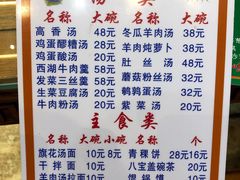 汤 类
名称 大碗 名称 大碗
高香汤 48元 冬瓜羊肉汤 38元
鸡蛋醪糟汤 28元 羊肉炖萝卜 38元
鸡蛋酸汤 20元 肚丝汤 48元
西湖牛肉羹 58元 蘑菇粉丝汤 32元
发菜三丝羹 58元 鹌鹑蛋汤 32元
生菜豆腐汤 20元 紫菜汤 20元
牛肉粉汤 20元
主食类
名称 大碗 小碗 名称 个
旗花汤面 10元 8元 青稞饼 28元 16元
干拌面 10元 八宝盖碗茶 20元
羊肉汤拉面 10元